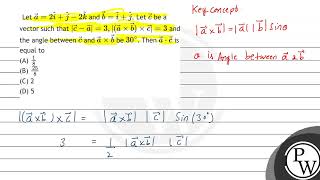 Let a⃗ = 2î + ĵ − 2k̂ and b⃗ = î + ĵ. Let c⃗ be a
vector such that |c⃗ − a⃗| = 3, |(a⃗ × b⃗) × c⃗| = 3 and
the angle between c⃗ and a⃗ × b⃗ be 30°. Then a⃗ · c⃗ is
equal to
(A) 1/8
(B) 25/8
(C) 2
(D) 5
Key concept
|a⃗ × b⃗| = |a⃗| |b⃗| Sinθ
θ is Angle between a⃗ & b⃗
|(a⃗ × b⃗) × c⃗| = |a⃗ × b⃗| |c⃗| Sin(30°)
3 = 1/2 |a⃗ × b⃗| |c⃗|
PW